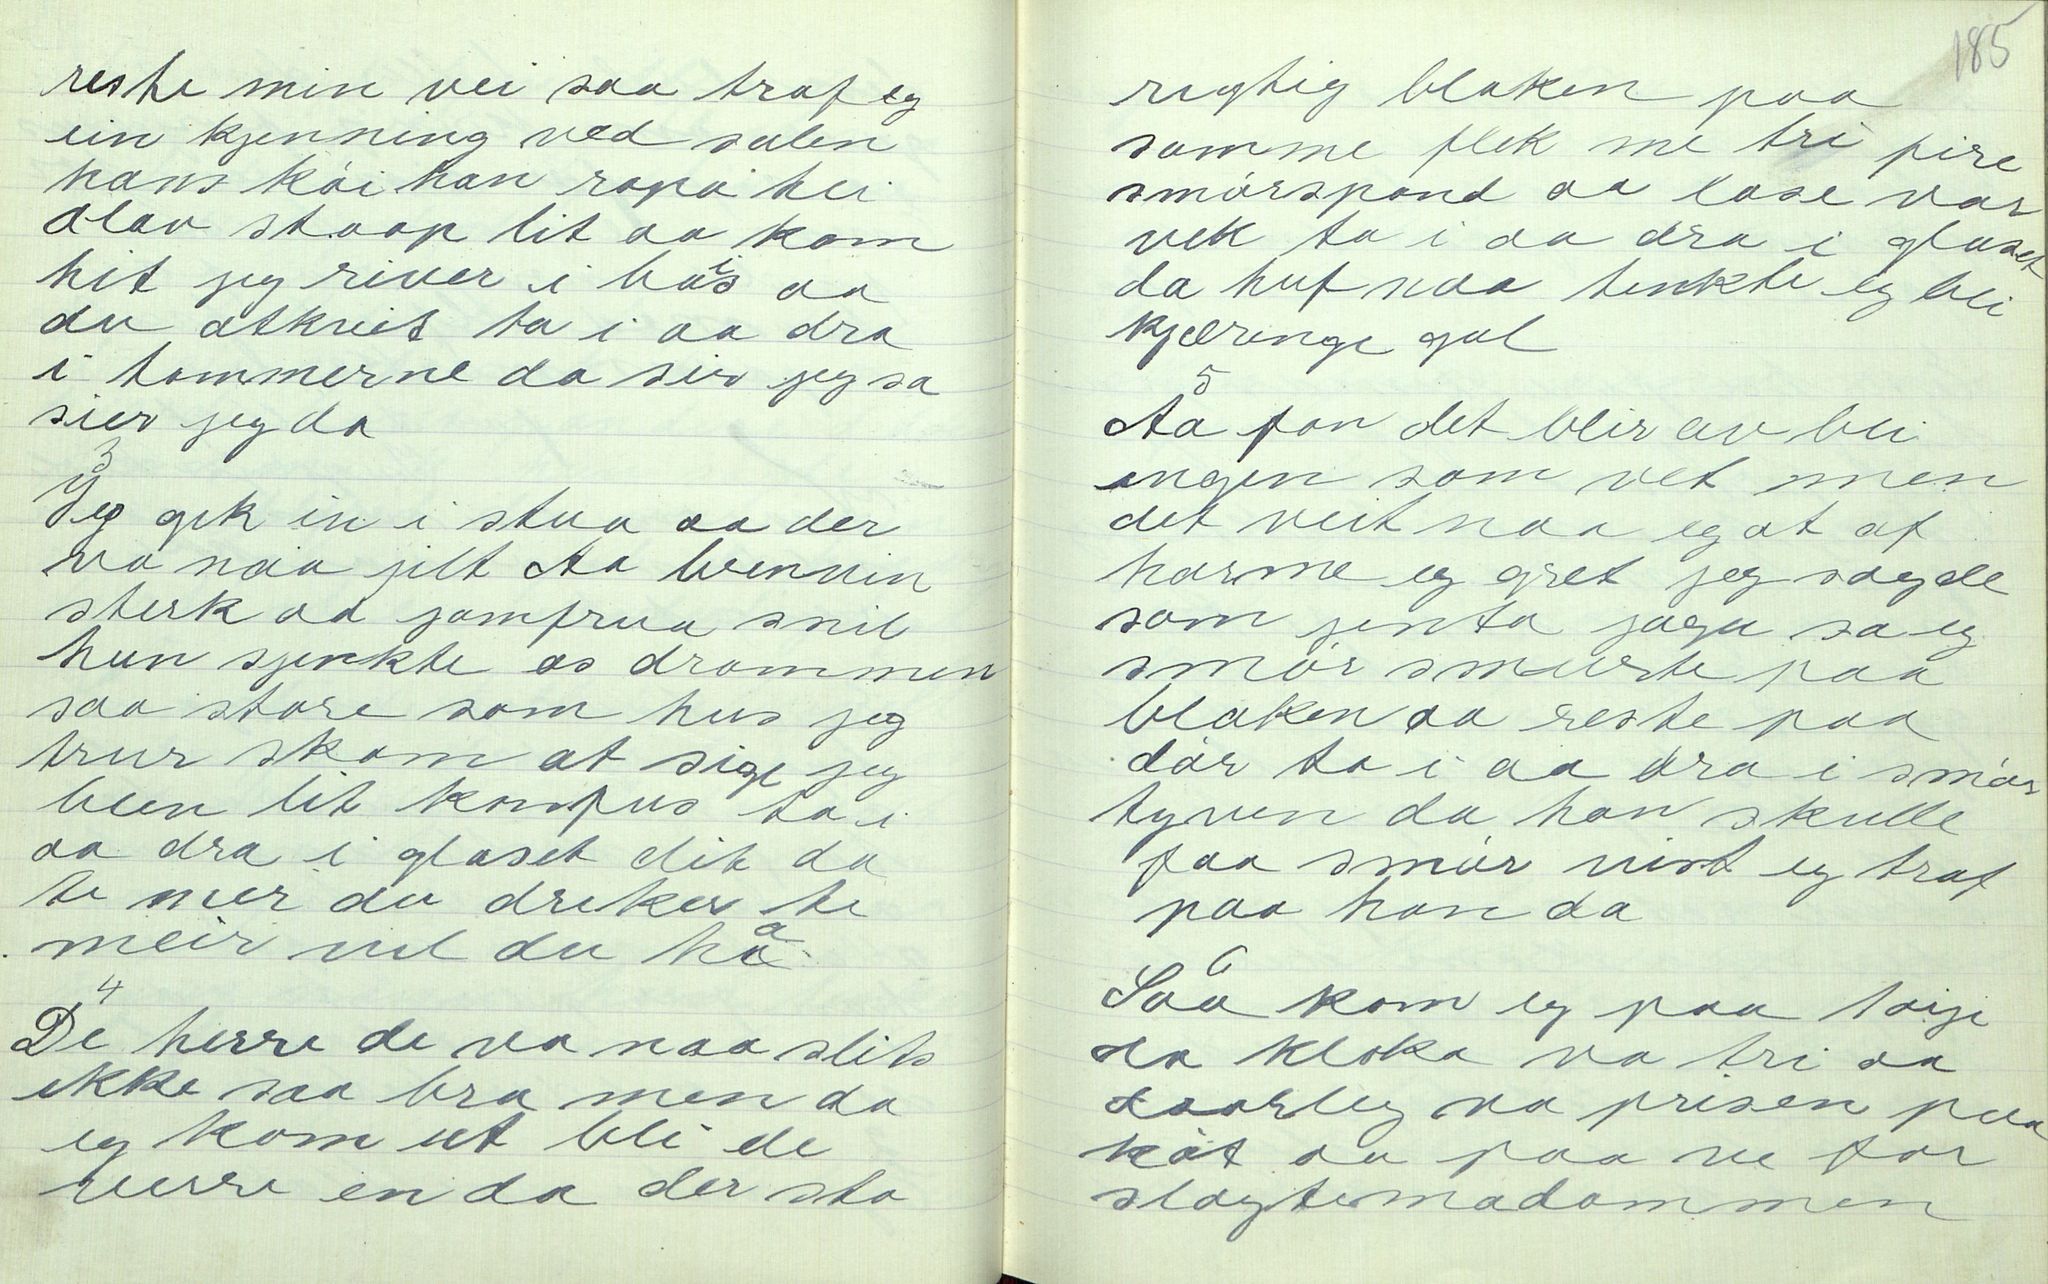 reste min vei saa traf eg
ein kjenning ved salen
hans kåi han ropa hei
Olav stoop lit aa kom
hit jeg river i bais aa
du atkveit ta i aa dra
i tommerne da sier jeg sa
sier jeg da
3
Jeg gik in i stua aa der
va naa jilt Aa brenvin
sterk aa jomfrua snil
hun sjenkte os drammen
saa store som hus jeg
trur skam at sige jeg
blen lit konfus ta i
aa dra i glaset dit da
te mer du dreker te
meir vil du ha
4
De herre de va naa slits
ikke saa bra men da
eg kom ut bli de
verre en da der sto
185
rugtig blaken paa
somme flek me tri fire
smórspand aa lase var
vek ta i aa dra i glaset
da huf naa tenkte eg bli
kjæringe gal
5
Aa fan det blir av bli
ingen som vet men
det veit naa eg at af
harme eg gret jeg sagde
som jenta jagu sa eg
smór smurte paa
blaken aa reste paa
dór ta i aa dra i smór
tyven da han skulle
faa smór vist eg traf
paa han da
6
Saa kom eg paa torje
da kloka va tri aa
daarleg va prisen paa
kót aa paa ve for
slagtemadammen